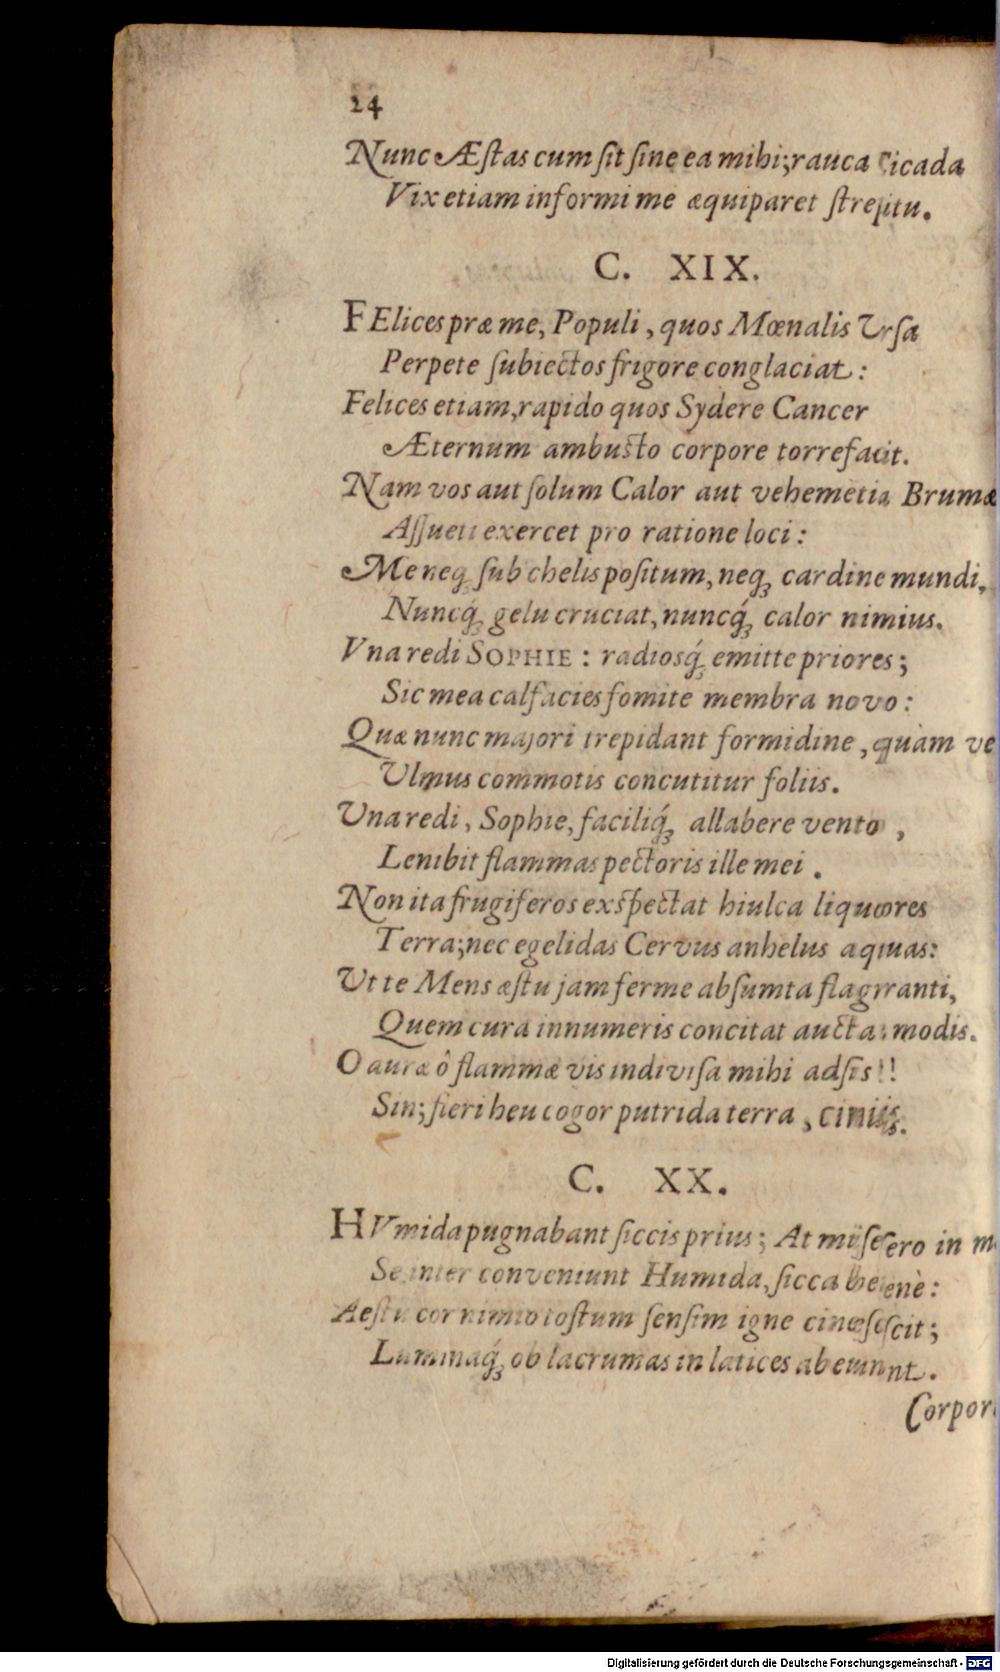 24
Nunc Æſtas cum ſit ſine ea mihi; rauca Cicada
Vix etiam informi me æquiparet ſtrepitu.
C. XIX.
FElices præ me, Populi, quos Mœnalis Vrſa
Perpete ſubiectos frigore conglaciat:
Felices etiam, rapido quos Sydere Cancer
Æternum ambuſto corpore torrefacit.
Nam vos aut ſolum Calor aut vehemetia Brumæ
Aſſueti exercet pro ratione loci:
Me neq; ſub chelis poſitum, neq; cardine mundi,
Nuncq́; gelu cruciat, nuncq́; calor nimius.
Vna redi SOPHIE: radiosq́; emitte priores;
Sic mea calfacies fomite membra novo:
Quæ nunc majori trepidant formidine, quàm ve
Ulmus commotis concutitur foliis.
Una redi, Sophie, faciliq́; allabere vento,
Lenibit flammas pectoris ille mei.
Non ita frugiferos exſpectat hiulca liquores
Terra; nec egelidas Cervus anhelus aquas:
Ut te Mens æſtu jam ferme abſumta flagranti,
Quem cura innumeris concitat aucta modis.
O auræ ô flammæ vis indiviſa mihi adſis!!
Sin; fieri heu cogor putrida terra, cinis.
C. XX.
HVmida pugnabant ſiccis prius; At miſero in
Se inter conveniunt Humida, ſicca benè:
Aeſtu cor nimio toſtum ſenſim igne cineſcit;
Luminaq́; ob lacrumas in latices abeunt.